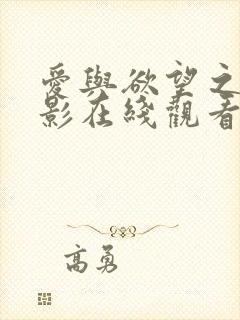 愛與欲望之
影在綫觀看
高勇